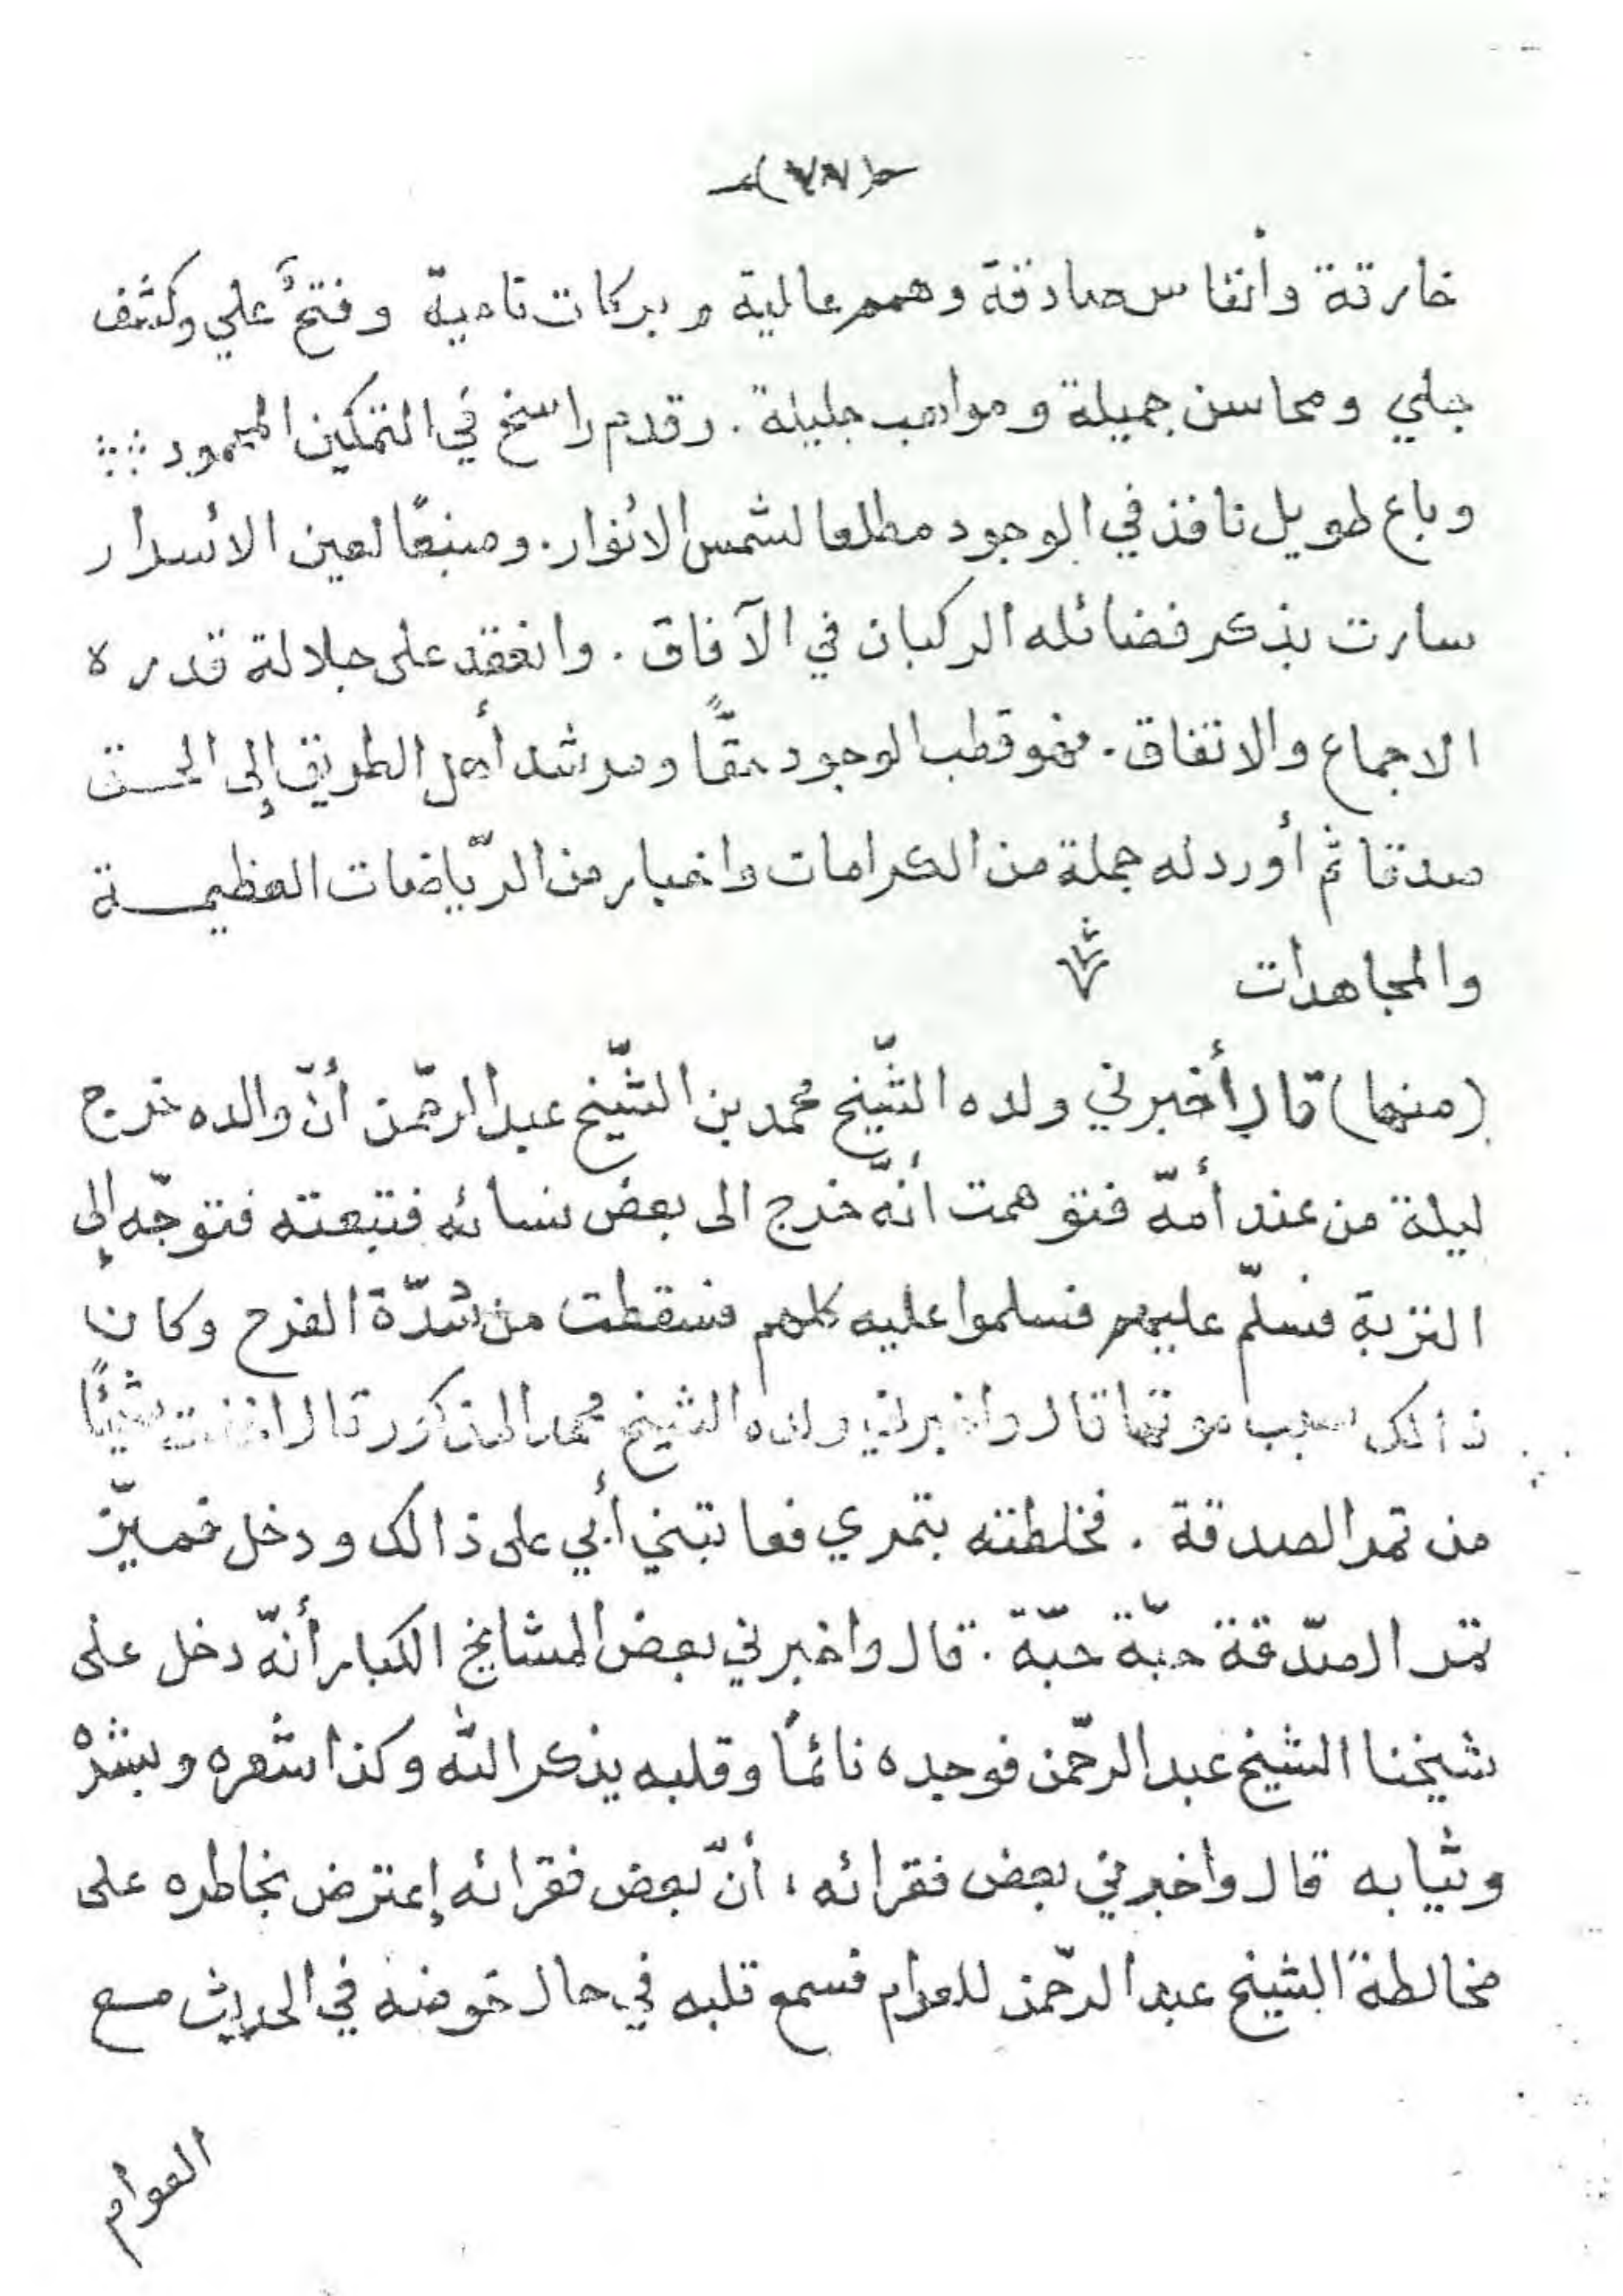 خارقة وأنفاس صادقة وهمم عالية وبركات نامية وفتحٌ علي وكشف
جلي ومحاسن جميلة ومواهب جليلة . وقدم راسخ في التمكين المحمود
وباع طويل نافذ في الوجود مطلعا لشمس الأنوار . ومنبعًا لعين الأسرار
سارت بذكر فضائله الركبان في الآفاق . وانعقد على جلالة قدره
الاجماع والاتفاق . فهو قطب الوجود حقًّا ومرشد أهل الطريق إلى الحق
صدقا ثم أورد له جملة من الكرامات واخبار من الرّياضات العظيمة
والمجاهدات
(منها) قال أخبرني ولده الشّيخ محمد بن الشّيخ عبد الرحّمن أنّ والده خرج
ليلة من عند أمّه فتوهمت أنّه خرج الى بعض نسائه فتبعته فتوجّه إلى
التربة فسلّم عليهم فسلموا عليه كلهم فسقطت من شدّة الفرح وكان
ذالك سبب موتها قال واخبرني ولده الشيخ محمد المذكور قال اخذت شيئًا
من تمر الصدقة . فخلطته بتمري فعاتبني أبي على ذالك ودخل فميّز
تمر الصّدقة حبّة حبّة . قال واخبرني بعض المشايخ الكبار أنّه دخل على
شيخنا الشيخ عبد الرحّمن فوجده نائمًا وقلبه يذكر الله وكذا شعره وبشرهْ
وثيابه قال واخبرني بعض فقرائه ، أنّ بعض فقرائه إعترض بخاطره على
مخالطة الشيخ عبد الرحّمن للعوام فسمع قلبه في حال خوضه في الحديث مع
العوام